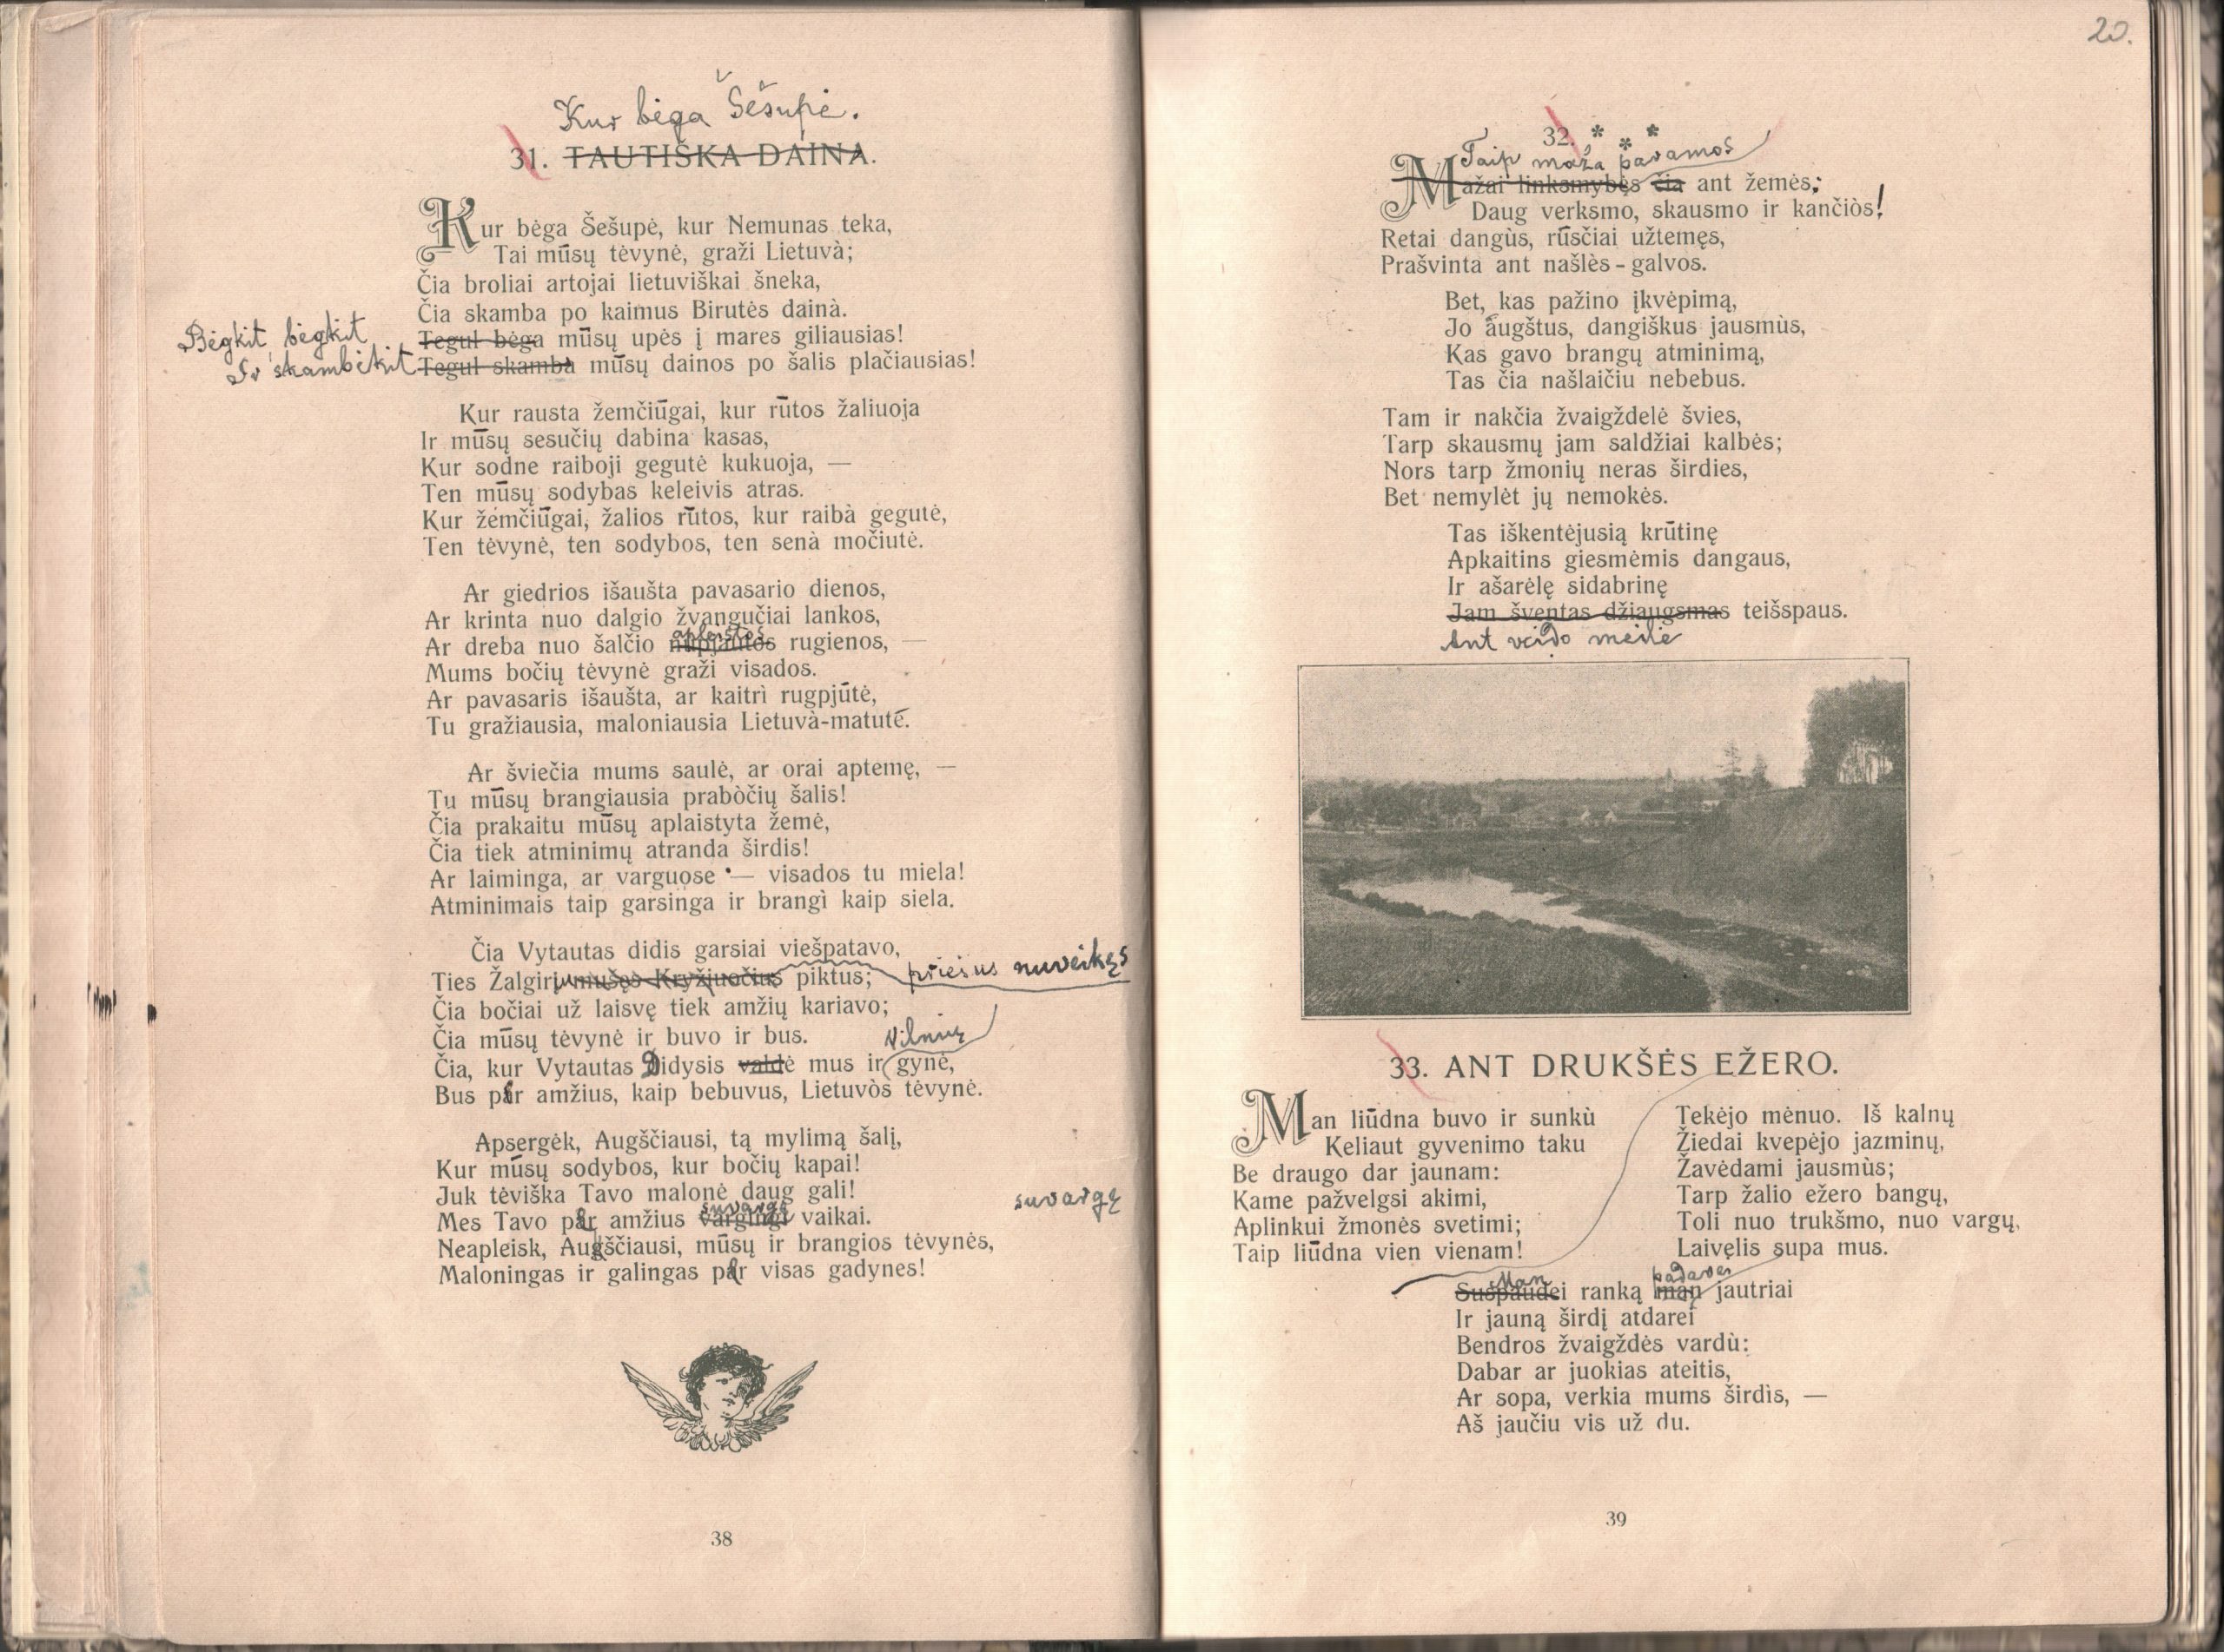 Kur bėga Šešupė.
31. TAUTIŠKA DAINA.
Kur bėga Šešupė, kur Nemunas teka,
Tai mūsų tėvynė, graži Lietuvà;
Čia broliai artojai lietuviškai šneka,
Čia skamba po kaimus Birutės dainà.
Bėgkit, bėgkit
Tegul bėga mūsų upės į mares giliausias!
Ir skambėkit
Tegul skamba mūsų dainos po šalis plačiausias!
Kur rausta žemčiūgai, kur rūtos žaliuoja
Ir mūsų sesučių dabina kasas,
Kur sodne raiboji gegutė kukuoja, —
Ten mūsų sodybas keleivis atras.
Kur žemčiūgai, žalios rūtos, kur raibà gegutė,
Ten tėvynė, ten sodybos, ten senà močiutė.
Ar giedrios išaušta pavasario dienos,
Ar krinta nuo dalgio žvangučiai lankos,
apleistos
Ar dreba nuo šalčio nupjautos rugienos, —
Mums bočių tėvynė graži visados.
Ar pavasaris išaušta, ar kaitrì rugpjūtė,
Tu gražiausia, maloniausia Lietuvà-matutė.
Ar šviečia mums saulė, ar orai aptemę, —
Tu mūsų brangiausia prabòčių šalis!
Čia prakaitu mūsų aplaistyta žemė,
Čia tiek atminimų atranda širdis!
Ar laiminga, ar varguose — visados tu miela!
Atminimais taip garsinga ir brangì kaip siela.
Čia Vytautas didis garsiai viešpatavo,
Ties Žalgiriu mušęs Kryžiuočius piktus; priešus nuveikęs
Čia bočiai už laisvę tiek amžių kariavo;
Čia mūsų tėvynė ir buvo ir bus.
Vilnių
Čia, kur Vytautas Didysis valdė mus ir gynė,
Bus per amžius, kaip bebuvus, Lietuvòs tėvynė.
Apsergėk, Augščiausi, tą mylimą šalį,
Kur mūsų sodybos, kur bočių kapai!
Juk tėviška Tavo malonė daug gali!
suvargę suvargę
Mes Tavo per amžius vargingi vaikai.
Neapleisk, Augščiausi, mūsų ir brangios tėvynės,
Maloningas ir galingas per visas gadynes!
38
20.
32. * * *
Taip maža paramos
Mažai linksmybės čia ant žemės;
Daug verksmo, skausmo ir kančiòs!
Retai dangùs, rūsčiai užtemęs,
Prašvinta ant našlès - galvos.
Bet, kas pažino įkvėpimą,
Jo augštus, dangiškus jausmùs,
Kas gavo brangų atminimą,
Tas čia našlaičiu nebebus.
Tam ir nakčia žvaigždelė švies,
Tarp skausmų jam saldžiai kalbės;
Nors tarp žmonių neras širdies,
Bet nemylėt jų nemokės.
Tas iškentėjusią krūtinę
Apkaitins giesmėmis dangaus,
Ir ašarėlę sidabrinę
Jam šventas džiaugsmas teišspaus.
Ant veido meilė
33. ANT DRUKŠĖS EŽERO.
Man liūdna buvo ir sunkù
Keliaut gyvenimo taku
Be draugo dar jaunam:
Kame pažvelgsi akimi,
Aplinkui žmonės svetimi;
Taip liūdna vien vienam!
Tekėjo mėnuo. Iš kalnų
Žiedai kvepėjo jazminų,
Žavėdami jausmùs;
Tarp žalio ežero bangų,
Toli nuo trukšmo, nuo vargų,
Laivelis supa mus.
Man padavei
Suspaudei ranką man jautriai
Ir jauną širdį atdarei
Bendros žvaigždės vardù:
Dabar ar juokias ateitis,
Ar sopa, verkia mums širdìs, —
Aš jaučiu vis už du.
39